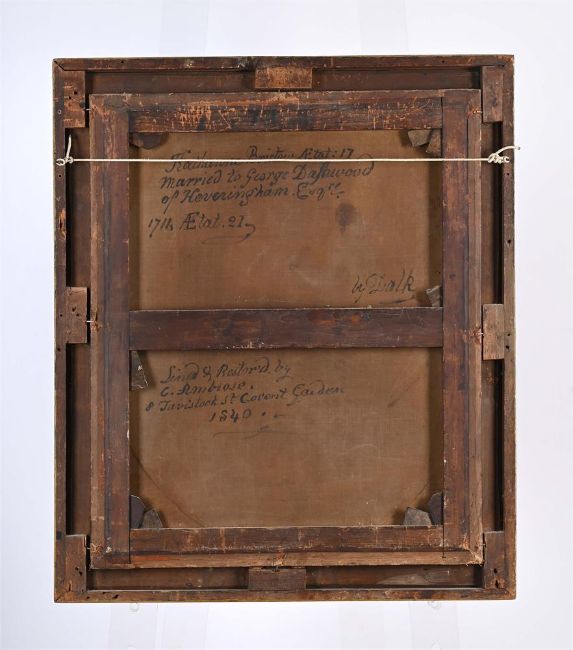 Katherine Bristow Ætat: 17
Married to George Dashwood
of Heveningham. Esqre.
1714 Ætat. 21
by Dalh
Lined & Restor'd by
C. Ambrose.
8 Tavistock St. Covent Garden
1840.